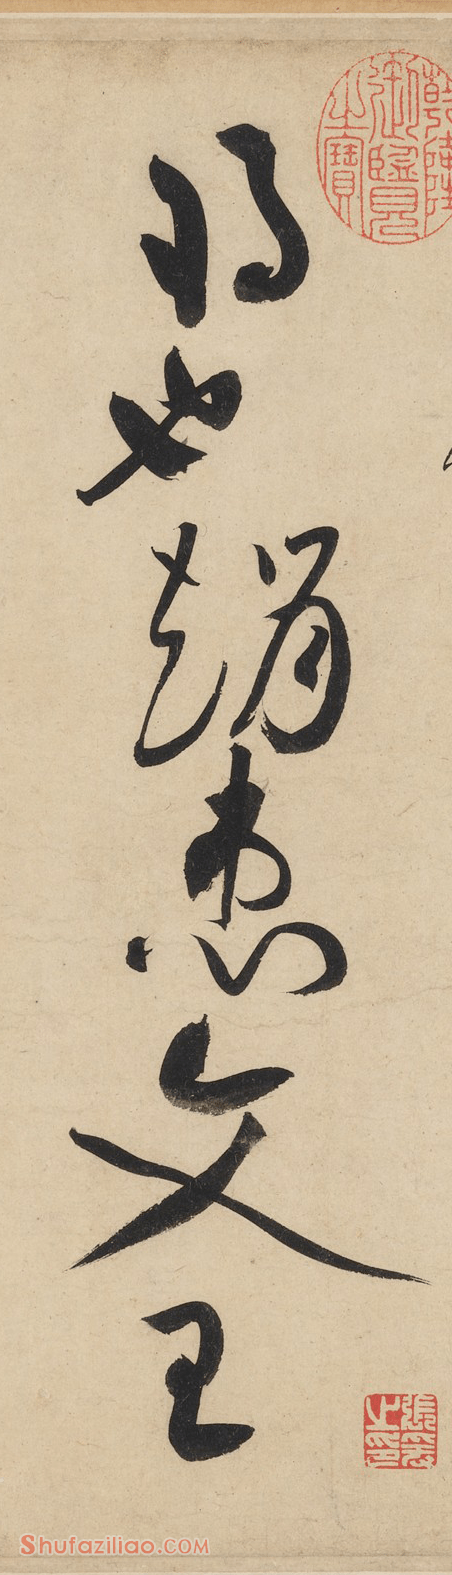 將也趙惠文王
乾隆御覽之寶
Shufaziliao.COM